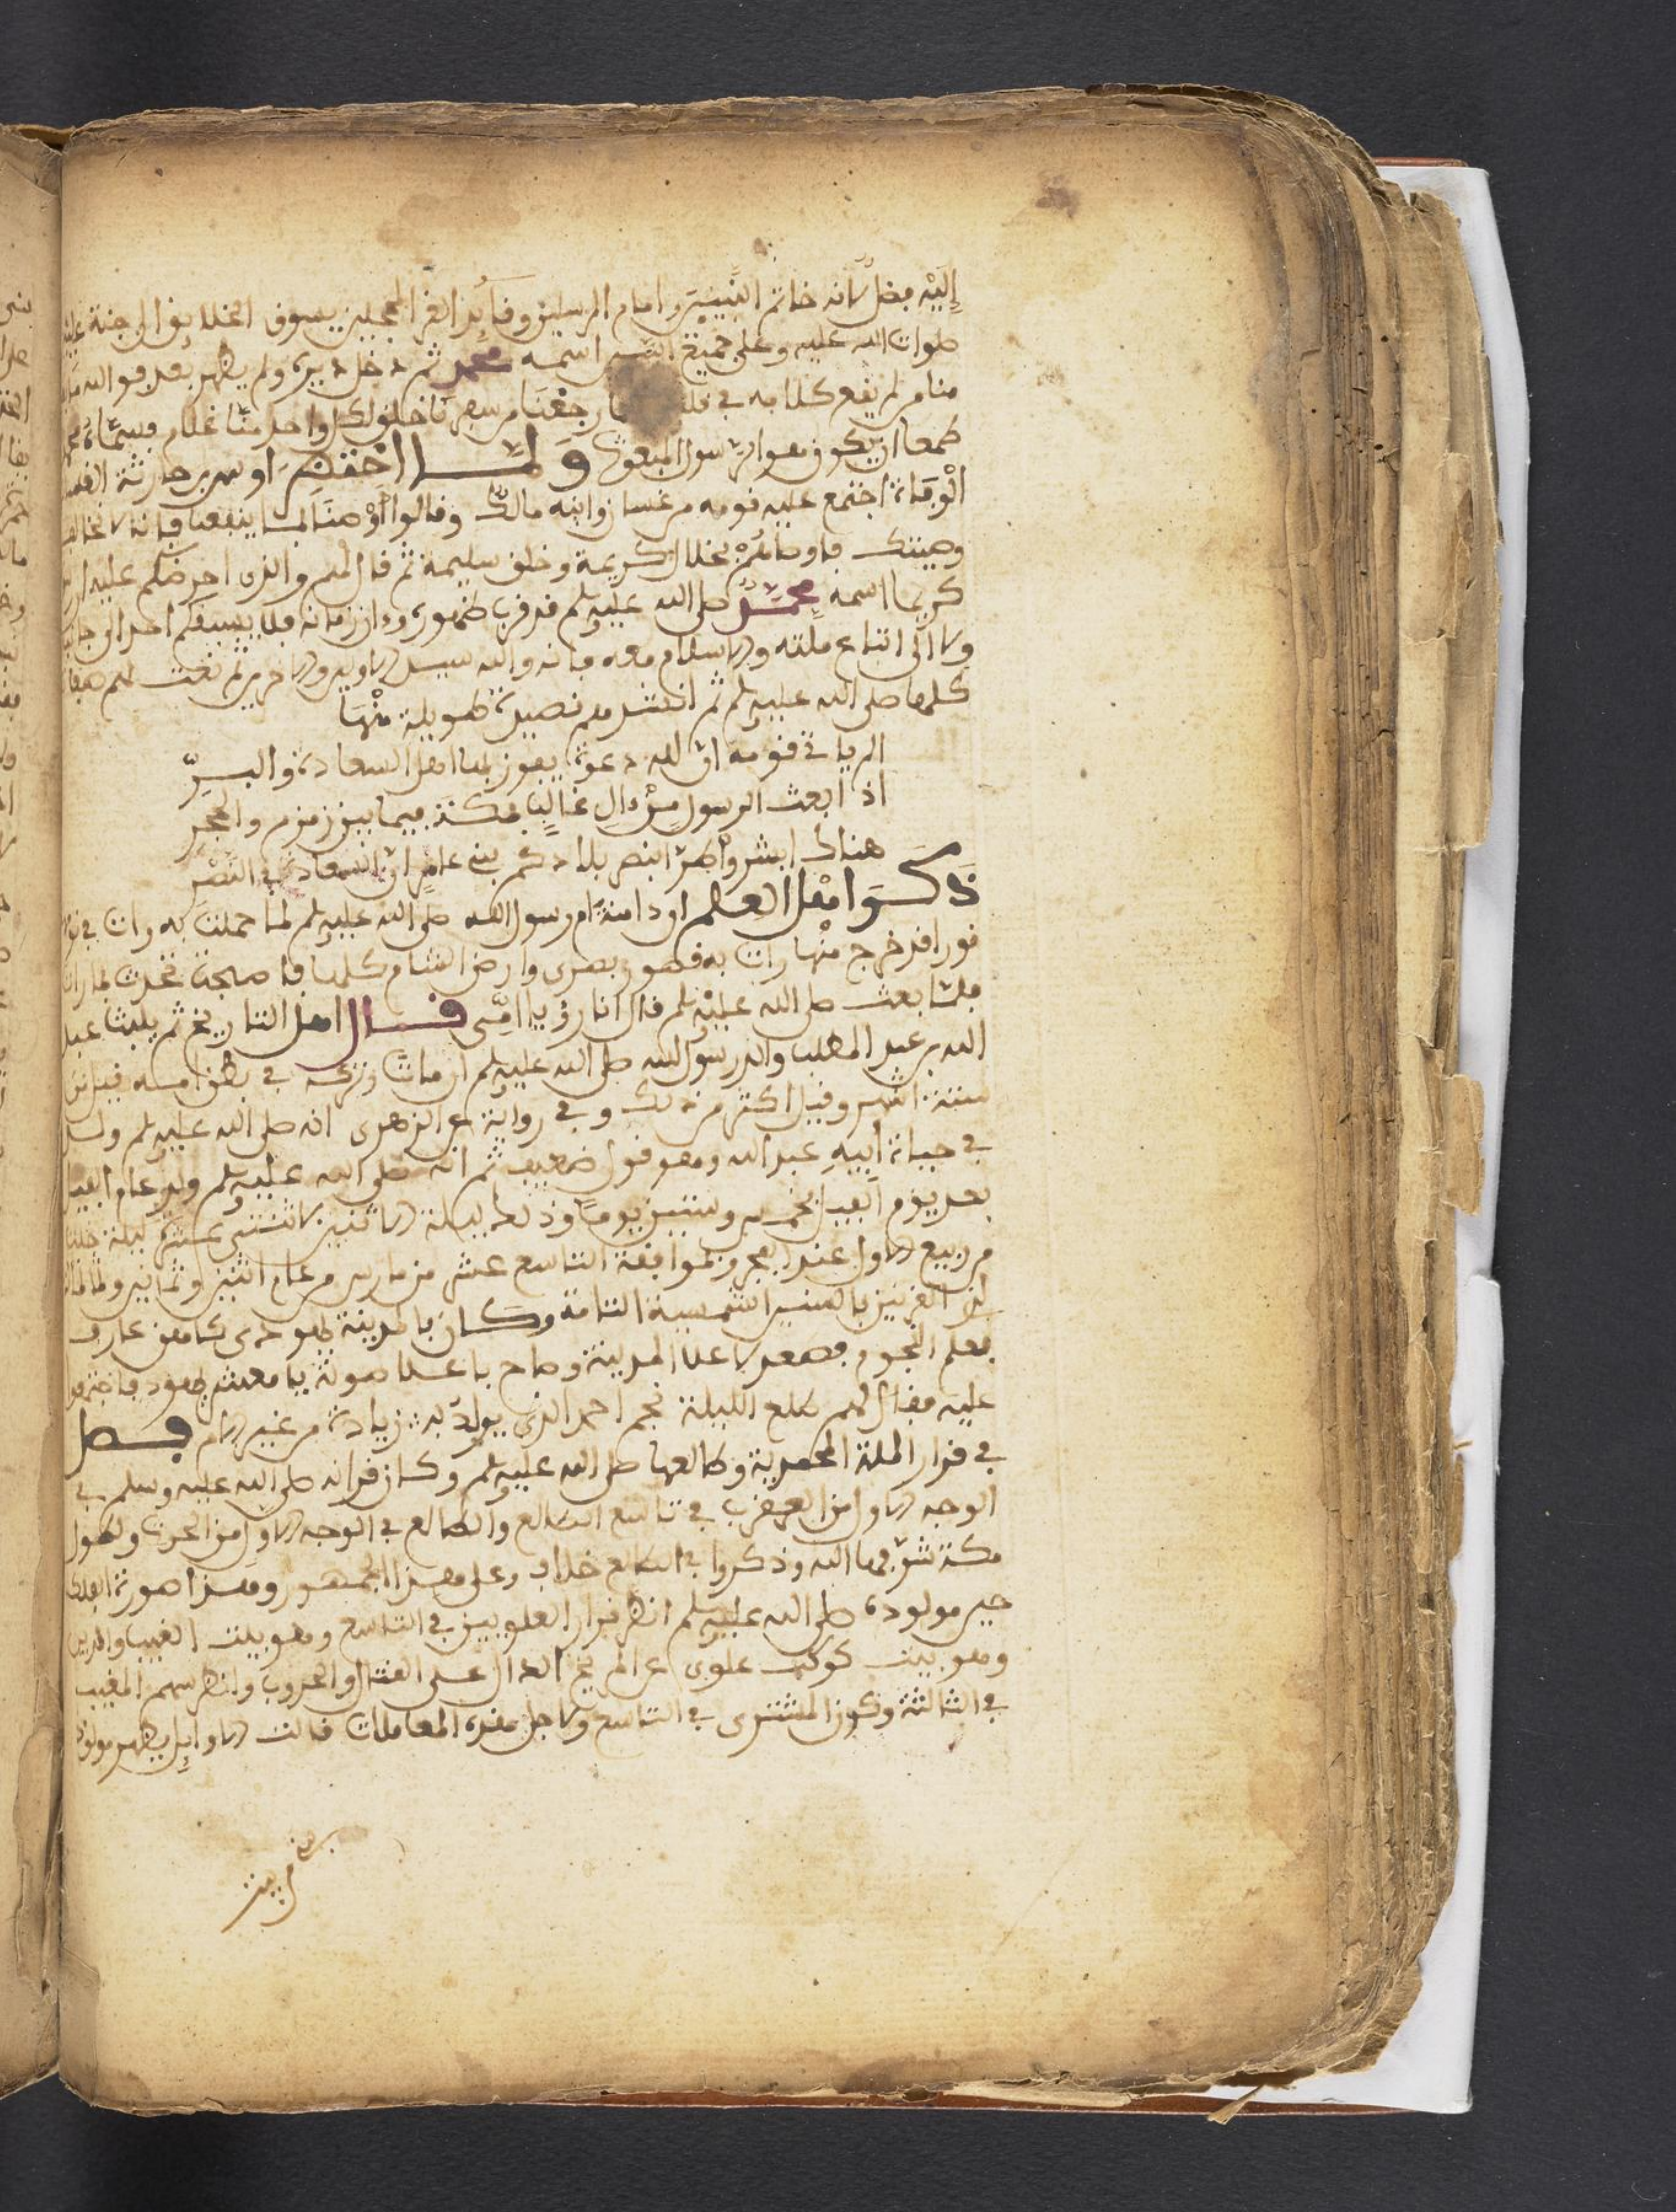 إِلَيْه فضل لانه خاتم النبيين وامام المرسلين وقائد الغر المحجلين يسوق الخلائق الى جنة
صلوات الله عليه وعلى جميع اسمه محمد ثم دخل ديره ولم يظهر بعد فوالله
منا من لم يقع كلامه في رجعنا من سفرنا خلق لكل واحد منا غلام فسماه
طمعا ان يكون هو الرسول المبعوث ولما احتضر اوس بن حارثة
الوفاة اجتمع عليه قومه من غسان وابنه مالك وقالوا أوْصنا بما ينفعنا فانا لا نخالف
وصيتك فاوصاهم بخلال كريمة وخلق سليمة ثم قال لهم والذى احرضكم عليه
كريما اسمه محمد صلى الله عليه وسلم قد قرب ظهوره وءان زمانه فلا يسبقكم احد الى
ولا الى اتباع ملته والاسلام معه فانه والله سيد الاولين والاخرين ثم نعت لهم
كلها صلى الله عليه وسلم ثم انشدهم قصيدة طويلة منها
الم يات قومه ان لله دعوة يفوز بها اهل السعادة والبر
اذا بعث الرسول من ءال غالب بمكة فيما بين زمزم والحجر
هنالك ابشروا طرا بنصر بلادكم بني عامر ان السعادة في النصر
ذكر اهل العلم ان ءامنة ام رسول الله صلى الله عليه وسلم لما حملت به رات في
نورا قد خرج منها رات به قصور بصرى وارض الشام كلها فاصبحت تحدث بما رات
فلما بعث صلى الله عليه وسلم قال انا رؤيا امي قال اهل التاريخ ثم يلبث عبد
الله بن عبد المطلب والد رسول الله صلى الله عليه وسلم ان مات وتركه في بطن امه قيل ابن
ستة اشهر وقيل اكثر من ذلك وفي رواية عن الزهرى انه صلى الله عليه وسلم ولد
في حياة ابيه عبد الله وهو قول ضعيف ثم انه صلى الله عليه وسلم ولد عام الفيل
بعد يوم الفيل بخمس وستين يوما وذلك ليلة الاثنين لاثنتي عشرة ليلة خلت
من ربيع الاول عند الفجر وبموافقة التاسع عشر من مارس من عام اثنين وثمانين
لذى القرنين بالسنين الشمسية التامة وكان بالمدينة يهودى كاهن عارف
بعلم النجوم فصعد لاعلا المدينة وصاح باعلا صوته يا معشر يهود فاجتمعوا
عليه فقال لهم طلع الليلة نجم احمد الذى يولد به زيادة من غير الام فصل
في قران الملة المحمدية وطالعها صلى الله عليه وسلم وكان قرانه صلى الله عليه وسلم في
الوجه الاول من العقرب في تاسع الطالع والطالع في الوجه الاول من الحوت ولطول
مكة شرفها الله وذكروا في الطالع خلاف وعلى هذا الجمهور وهذا صورة الفلك
حين مولوده صلى الله عليه وسلم انظر قران العلويين في التاسع وهو بيت الغيب والدين
وهو بيت كوكب علوى المريخ الدال على القتال والحروب وانظر سهم الغيب
في الثالثة وكون المشترى في التاسع ولاجل هذه المعاملات قالت الاوايل يظهر مولود